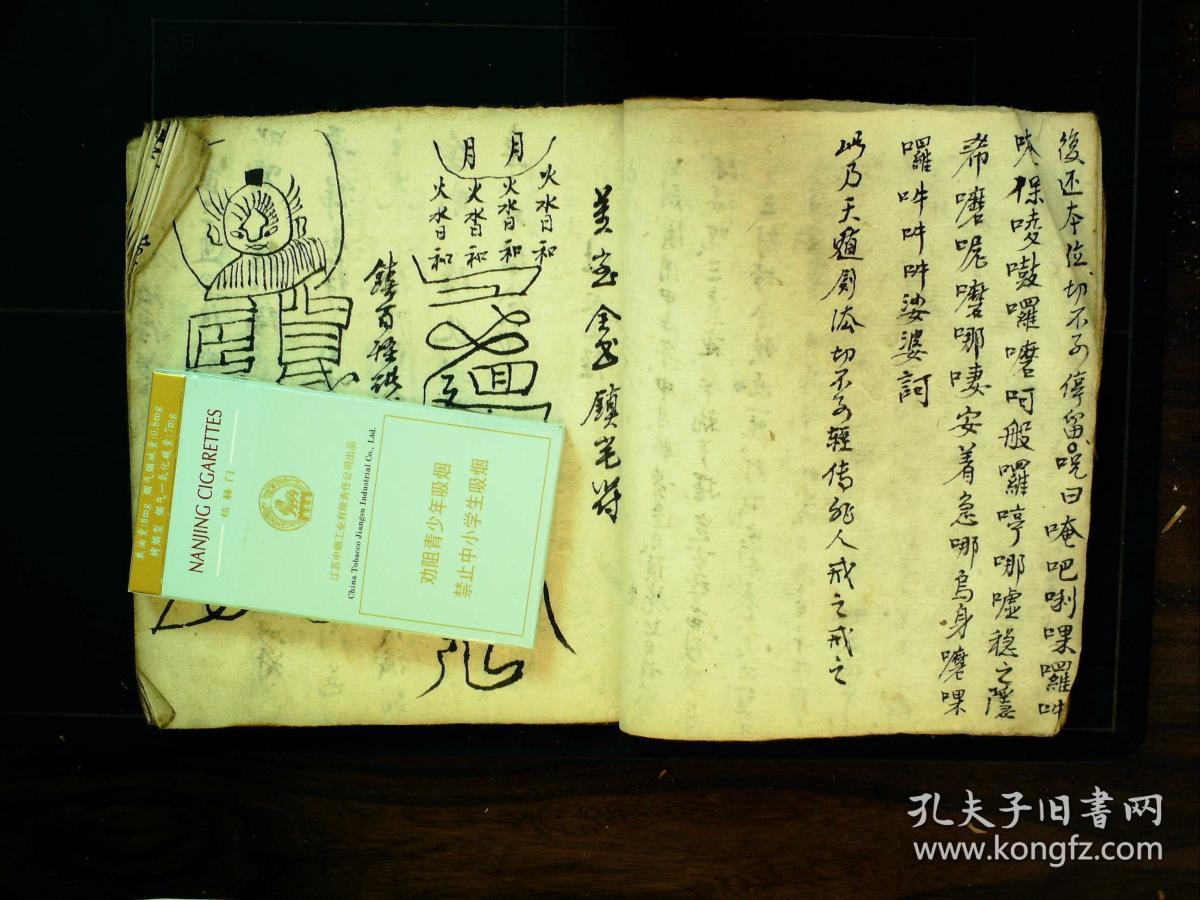 後还本位、切不可停留。咒曰唵吧唎㗖囉吽
吠保唛嗷囉嚰呵般囉哼哪嘘稳之隱
希嚰呢嚰哪唛安着急哪烏身嚰㗖
囉吽吽吽娑婆訶
此乃天 劍法切不可輕传非人戒之戒之
金 鎮宅符
月月
火水日和
火水日和
火水日和
火水日和
鎮百
NANJING CIGARETTES
焦油量:8mg 烟气烟碱量:0.8mg
烤烟型 烟气一氧化碳量:7mg
炫赫门
江苏中烟工业有限责任公司出品
China Tobacco Jiangsu Industrial Co., Ltd.
劝阻青少年吸烟
禁止中小学生吸烟
A5
孔夫子旧書网
www.kongfz.com